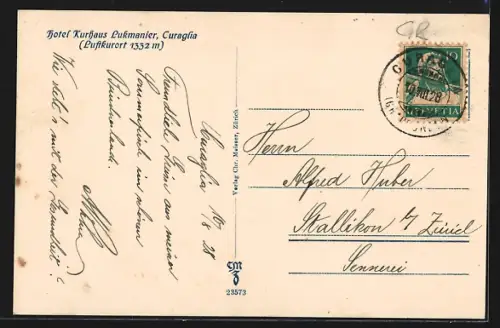 Hotel Kurhaus Lukmanier, Curaglia
(Luftkurort 1332 m)
GR
10
HELVETIA
10.VIII.28
Curaglia 10/8 28
Freundliche Grüsse aus meiner
Sommerfrisch im schönen
Bündnerland.
Wie steht's mit der Gesundheit?
Verlag Chr. Meisser, Zürich
23573
Herrn
Alfred Huber
Stallikon b/ Zürich
Sennerei